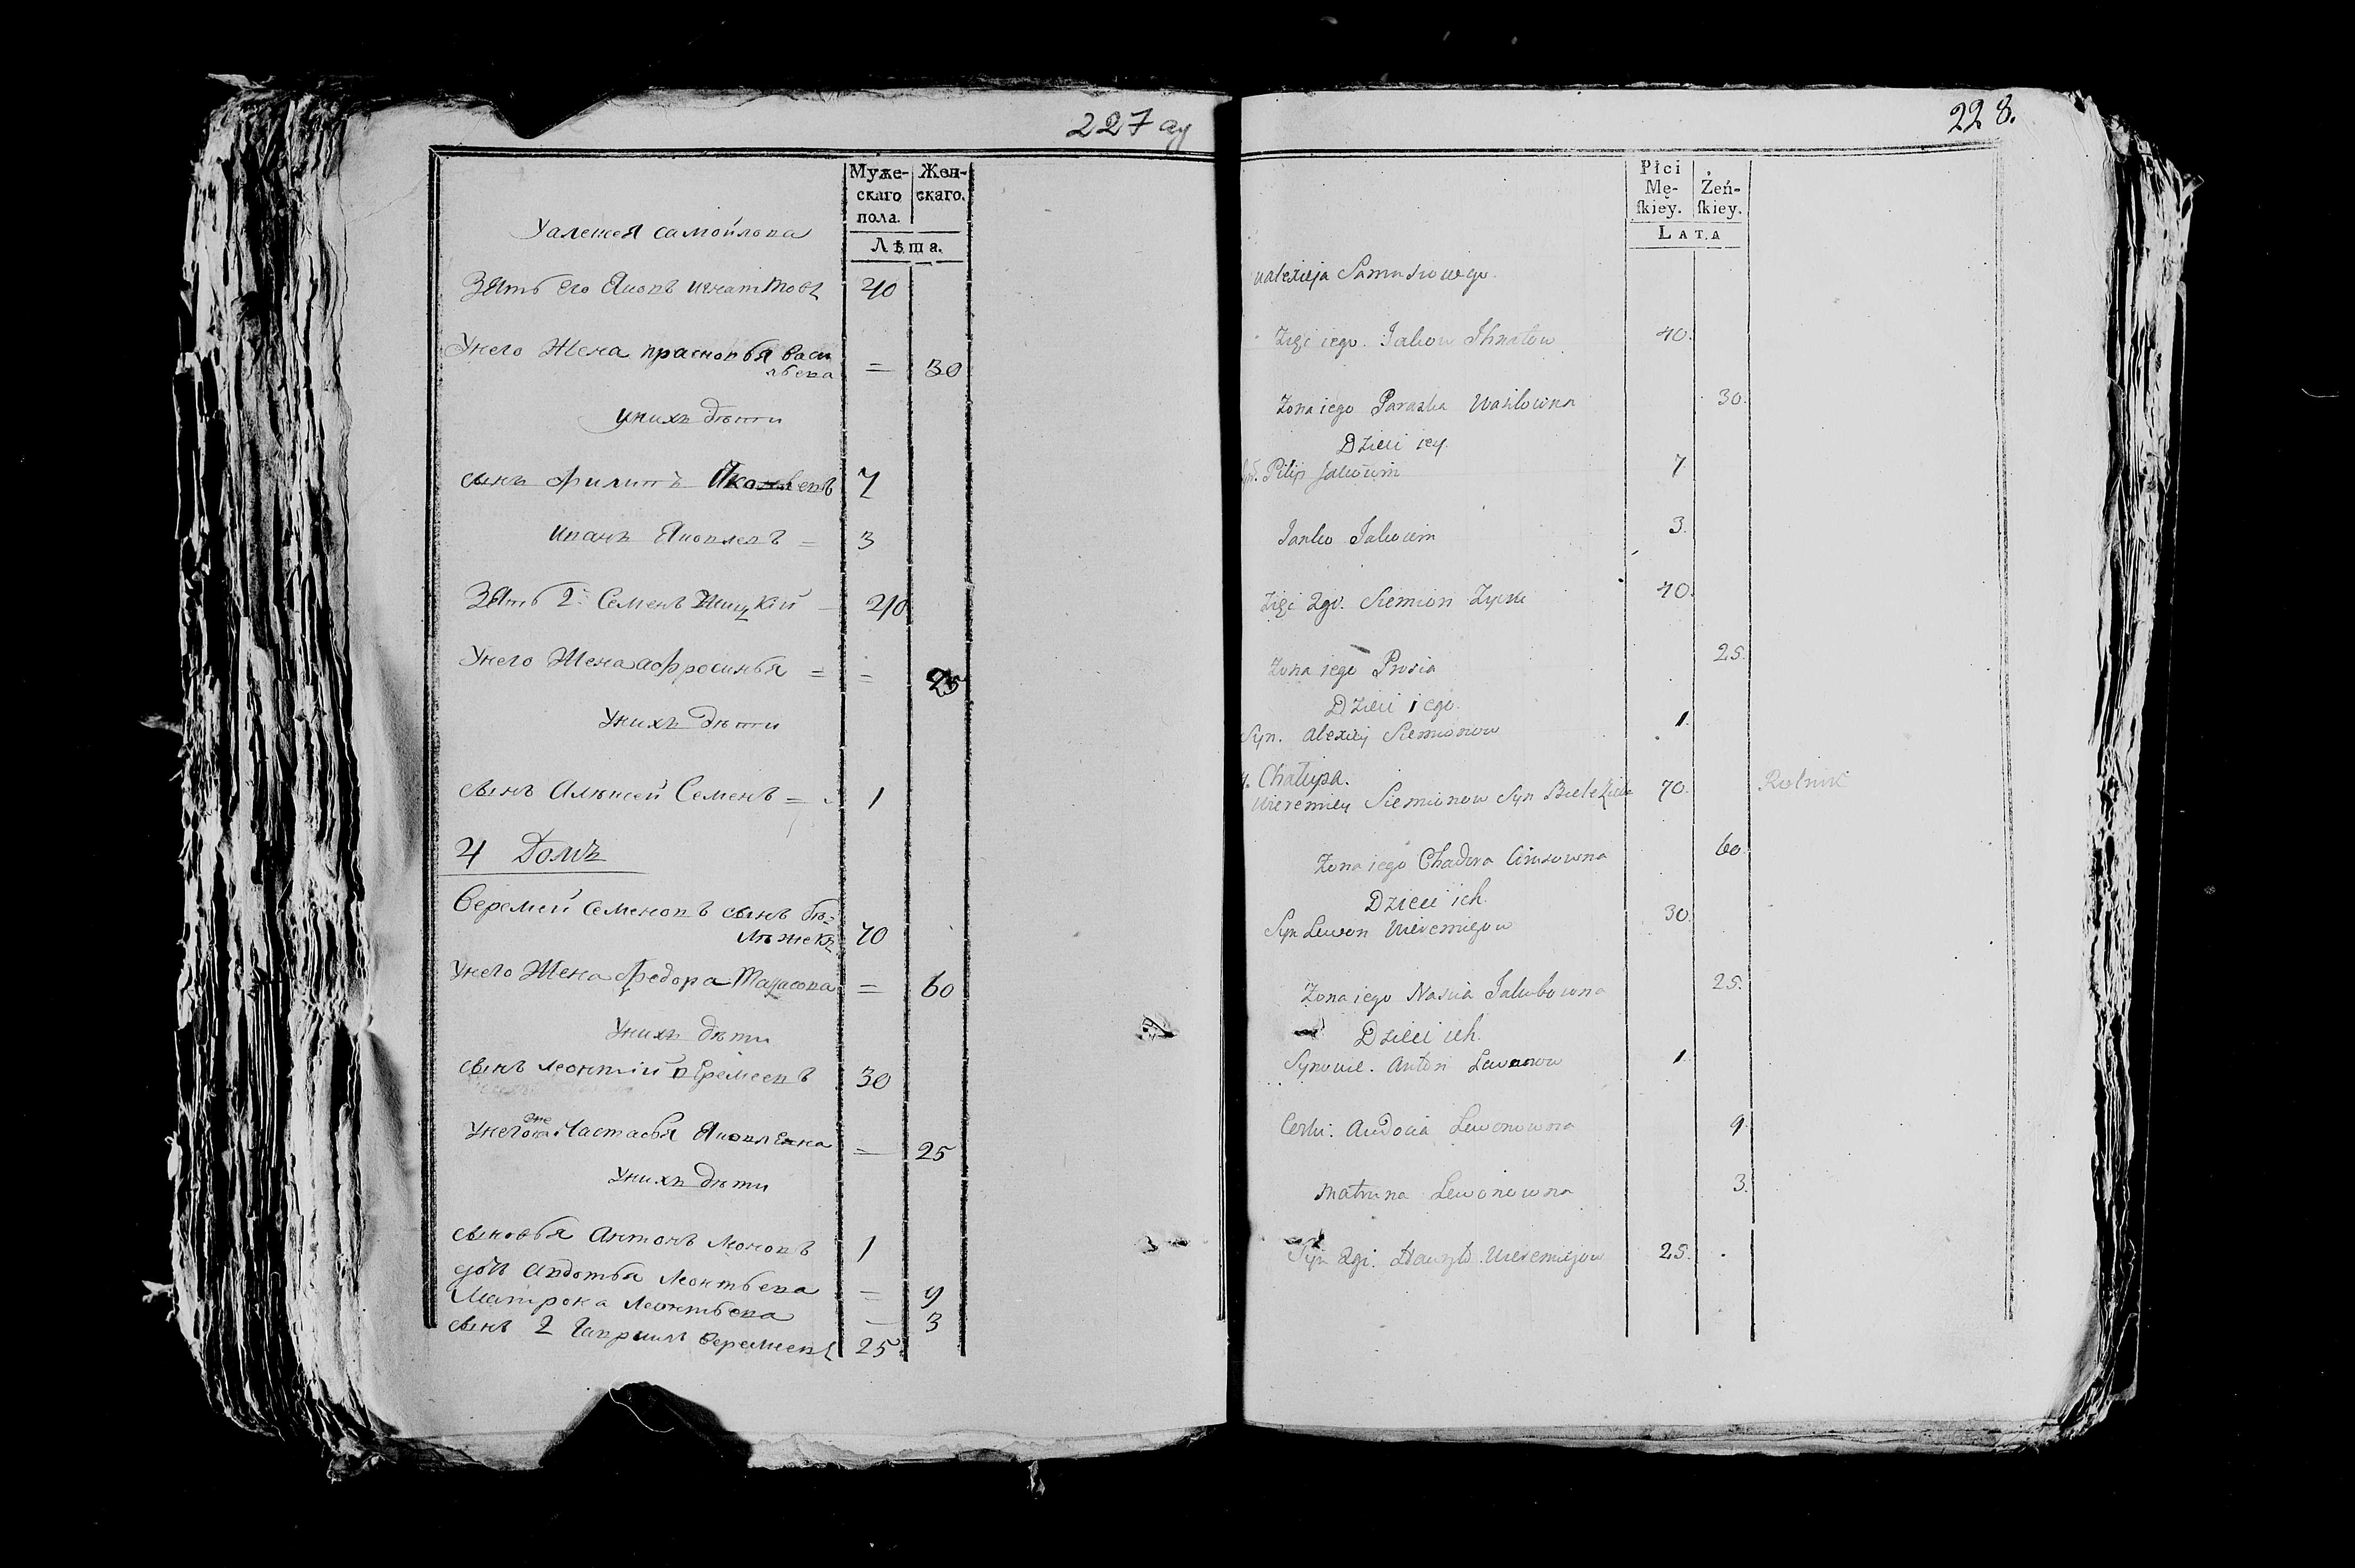 227 ау
Муже-
скаго
пола.
Жен-
скаго.
Лѣта.
Уалексея самойлова
Зять его Яковъ игнатовъ 40
Унего Жена прасковья васи
льева = 30
унихъ дѣти
сынъ филипъ 7
иванъ Яковлевъ = 3
Зять 2. Семенъ 40
Унего Жена афросинья = = 25
Унихъ дѣти
сынъ Алексей Семенъ = 1
4 Домъ
Веремей Семеновъ сынъ бѣ=
70
Унего Жена федора Тарасова = 60
Унихъ дѣти
сынъ леонтiй веремеевъ 30
Унего жена Настасья Яковлевна = 25
Унихъ дѣти
сыновья антонъ 1
авдотья леонтьева = 9
Матрона леонтьева = 3
сынъ 2 гаврила веремеевъ 25
228.
Płci
Mę-
skiey.
Żeń-
skiey.
LATA
Zięć iego. Jakow Ihnatow 40.
Zona iego Paraska Wasilowna 30
Dzieci iey.
Pilip 7
Janko 3.
Zięć 2gi. Siemion 40.
Zona iego Prosia 25.
Dzieci iego.
Syn. Alexiey Siemionow 1.
Chałupa.
Wieremiey Siemionow Syn 70. Rolnik
Zona iego Chadora 60
Dzieci ich.
Syn Lewon Wieremiejow 30
Zona iego Nascia Jakubowna 25.
Dzieci ich.
Synowie. Anton Lewonow 1.
Corki. Audocia Lewonowna 9.
Matruna Lewonowna 3.
Syn 2gi. Hauryło Wieremiejow 25.